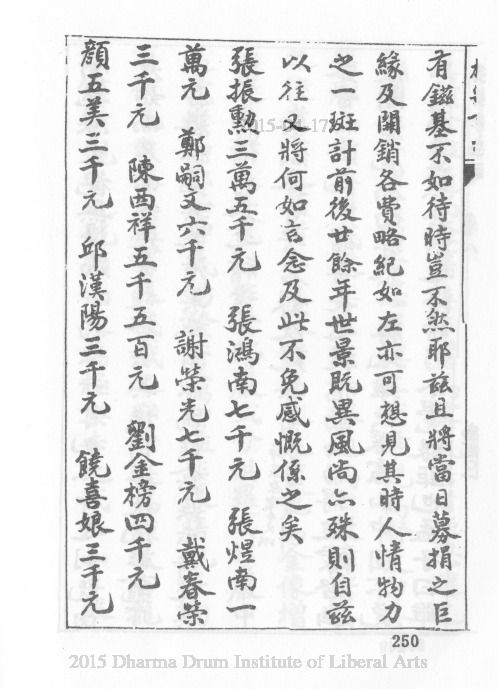 有鎡基不如待時豈不然耶玆且將當日募捐之巨
緣及開銷各費略紀如左亦可想見其時人情物力
之一斑計前後廿餘年世景既異風尚亦殊則自玆
以往又將何如言念及此不免感慨係之矣
張振勳三萬五千元 張鴻南七千元 張煜南一
萬元 鄭嗣文六千元 謝榮光七千元 戴春榮
三千元 陳西祥五千五百元 劉金榜四千元
顏五美三千元 邱漢陽三千元 饒喜娘三千元
250
2015 Dharma Drum Institute of Liberal Arts